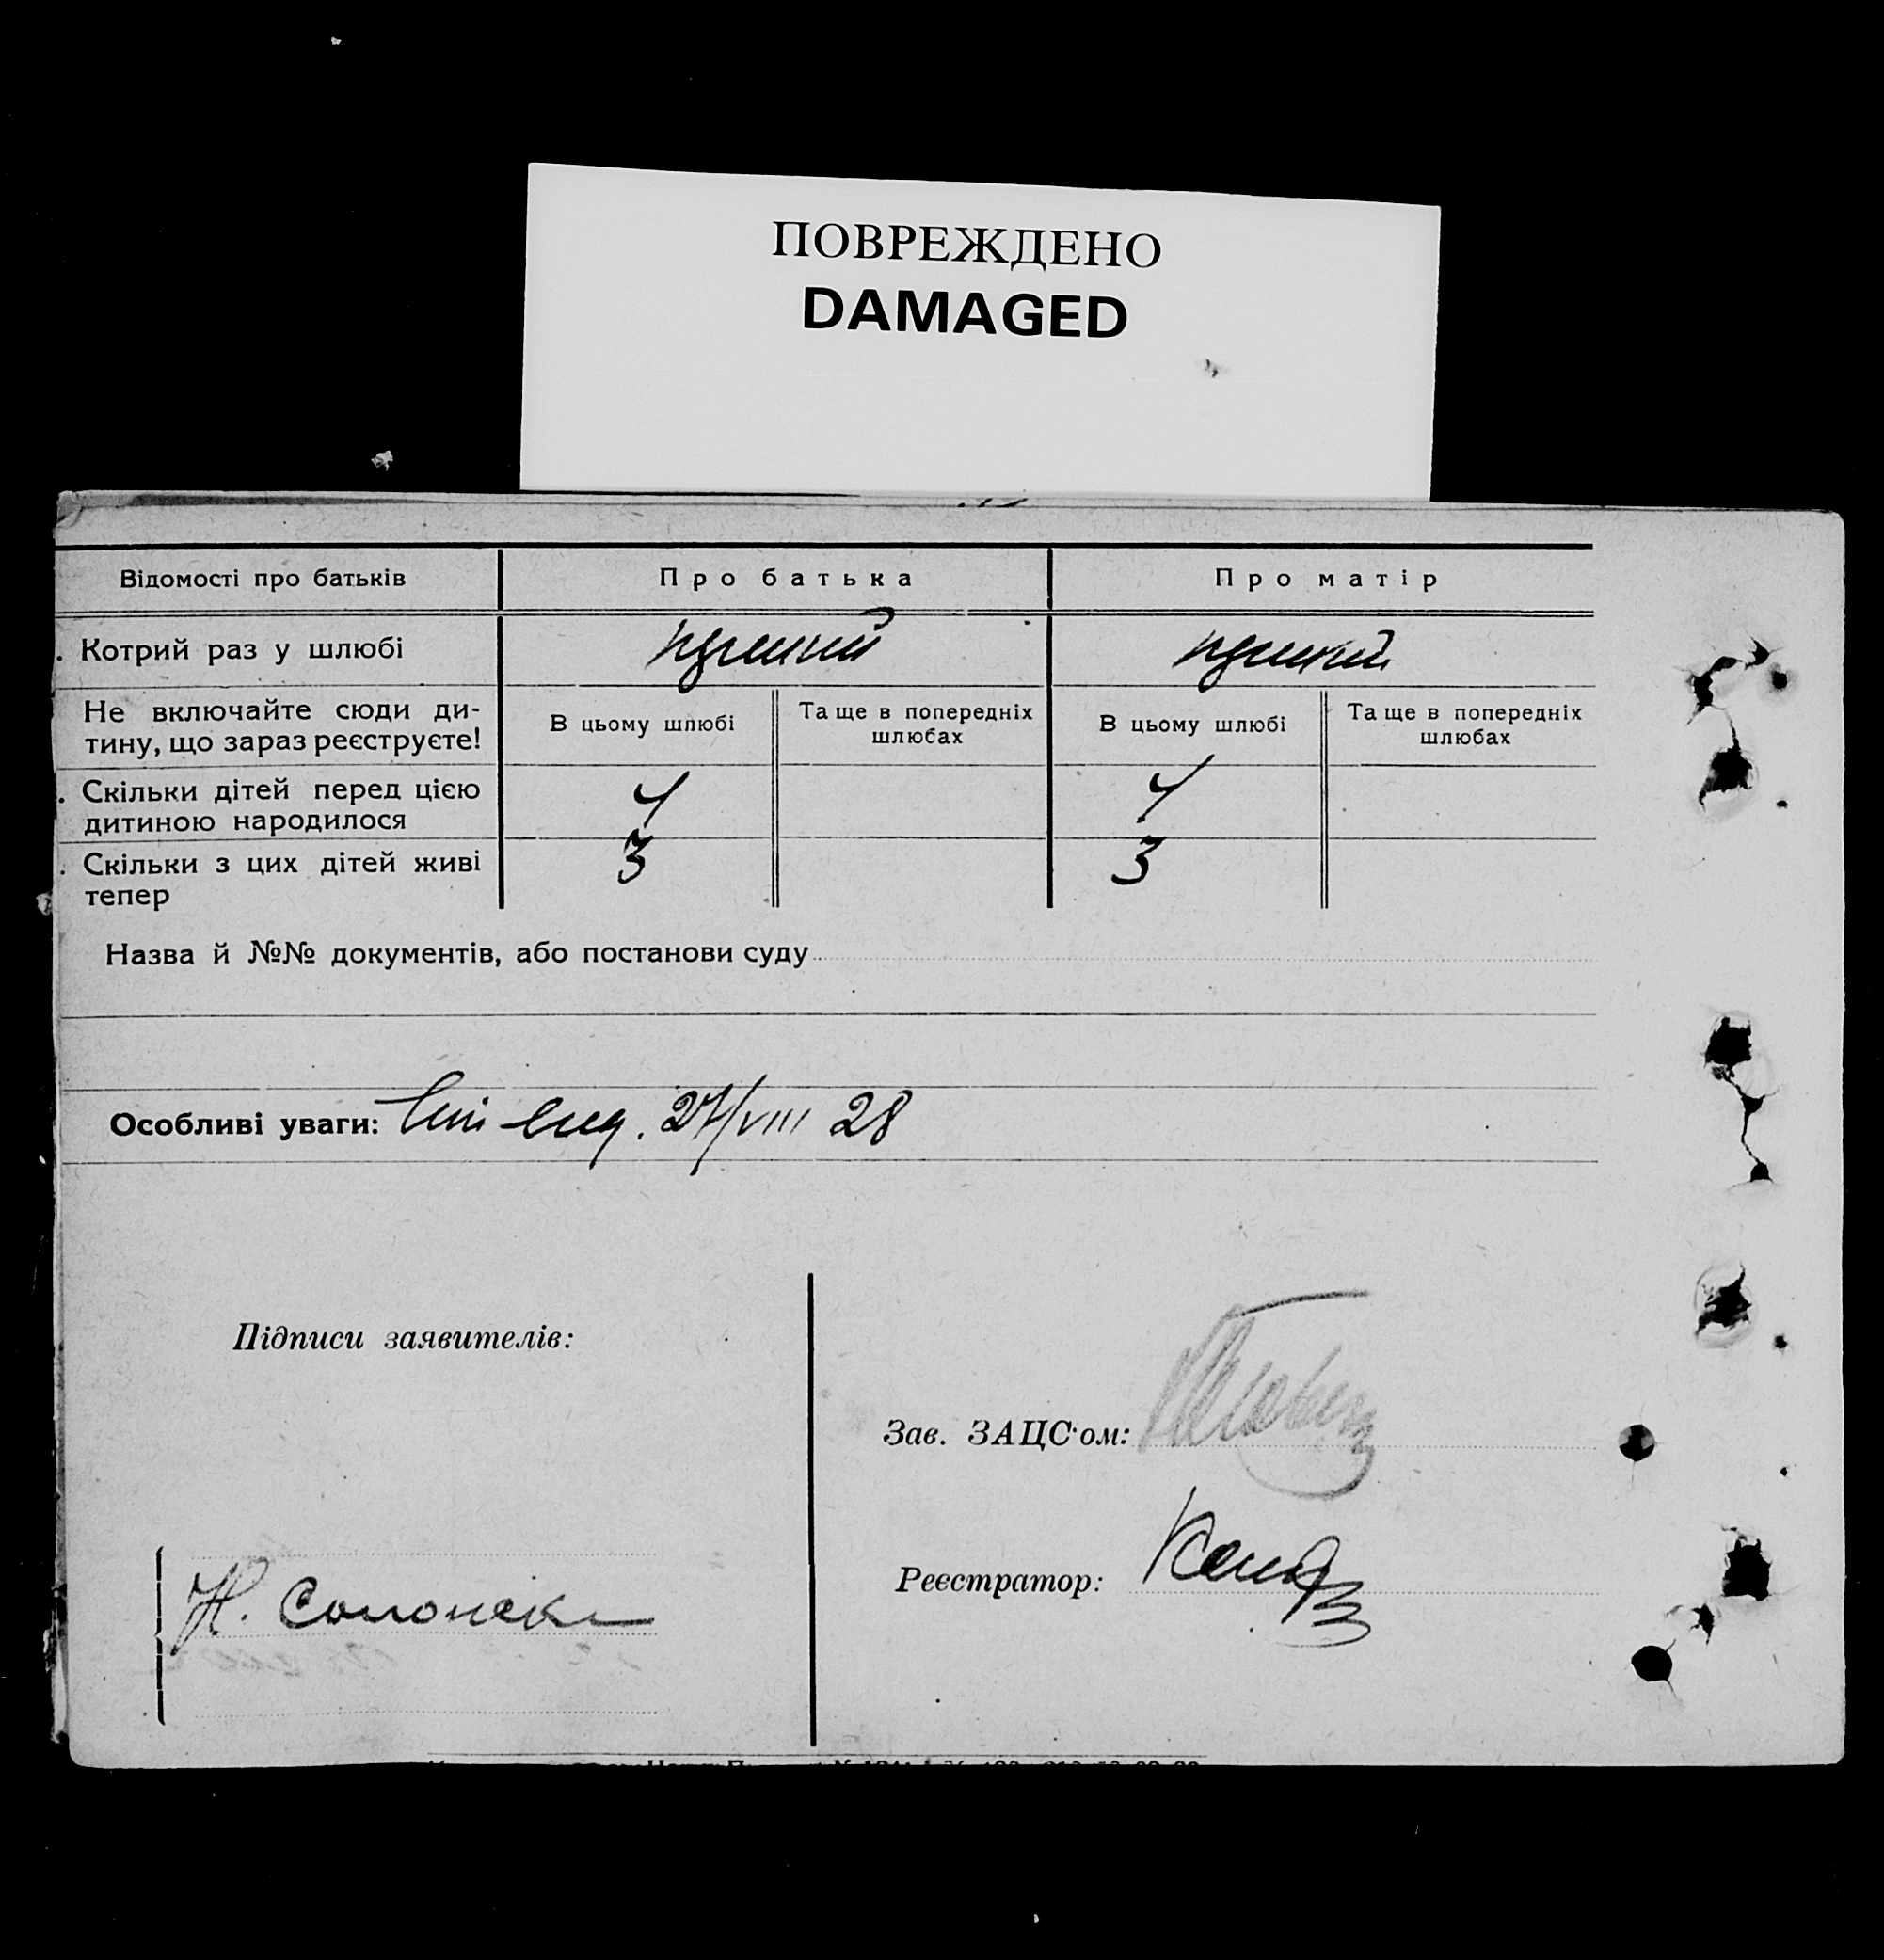 ПОВРЕЖДЕНО
DAMAGED
Відомості про батьків
Про батька
Про матір
. Котрий раз у шлюбі
Не включайте сюди ди-
тину, що зараз реєструєте!
В цьому шлюбі
Та ще в попередніх
шлюбах
В цьому шлюбі
Та ще в попередніх
шлюбах
. Скільки дітей перед цією
дитиною народилося
4
4
. Скільки з цих дітей живі
тепер
3
3
Назва й №№ документів, або постанови суду
Особливі уваги: 27/VIII 28
Підписи заявителів:
Зав. ЗАЦС'ом:
Реєстратор:
Н.